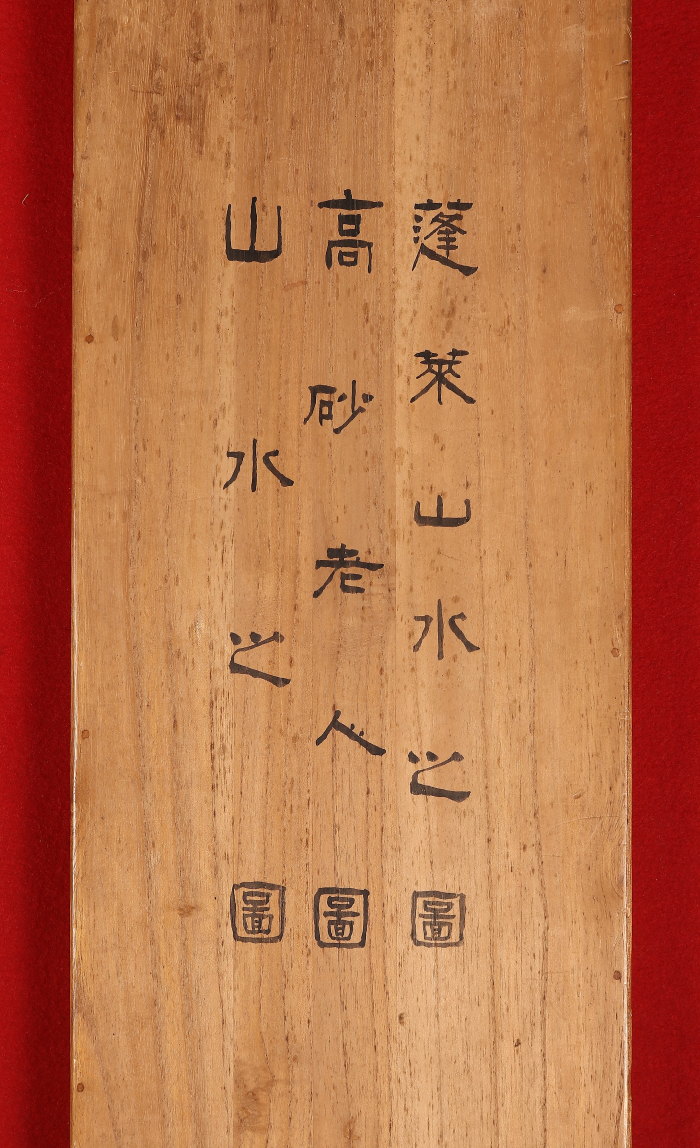 蓬萊山水之圖
高砂老人圖
山水之圖